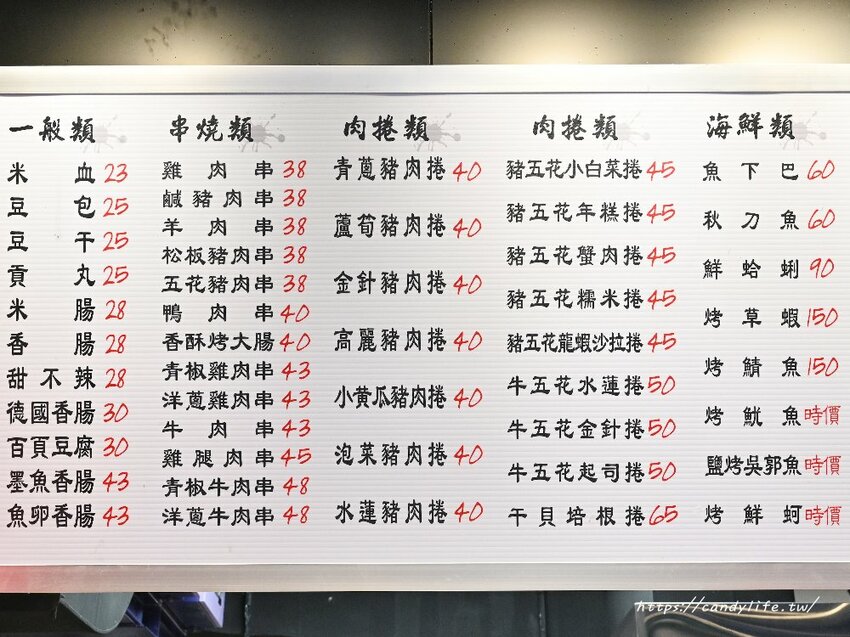 一般類
米血 23
豆包 25
豆干 25
貢丸 25
米腸 28
香腸 28
甜不辣 28
德國香腸 30
百頁豆腐 30
墨魚香腸 43
魚卵香腸 43
串燒類
雞肉串 38
鹹豬肉串 38
羊肉串 38
松板豬肉串 38
五花豬肉串 38
鴨肉串 40
香酥烤大腸 40
青椒雞肉串 43
洋蔥雞肉串 43
牛肉串 43
雞腿肉串 45
青椒牛肉串 48
洋蔥牛肉串 48
肉捲類
青蔥豬肉捲 40
蘆筍豬肉捲 40
金針豬肉捲 40
高麗豬肉捲 40
小黃瓜豬肉捲 40
泡菜豬肉捲 40
水蓮豬肉捲 40
肉捲類
豬五花小白菜捲 45
豬五花年糕捲 45
豬五花蟹肉捲 45
豬五花糯米捲 45
豬五花龍蝦沙拉捲 45
牛五花水蓮捲 50
牛五花金針捲 50
牛五花起司捲 50
干貝培根捲 65
海鮮類
魚下巴 60
秋刀魚 60
鮮蛤蜊 90
烤草蝦 150
烤鯖魚 150
烤魷魚 時價
鹽烤吳郭魚 時價
烤鮮蚵 時價
https://candylife.tw/